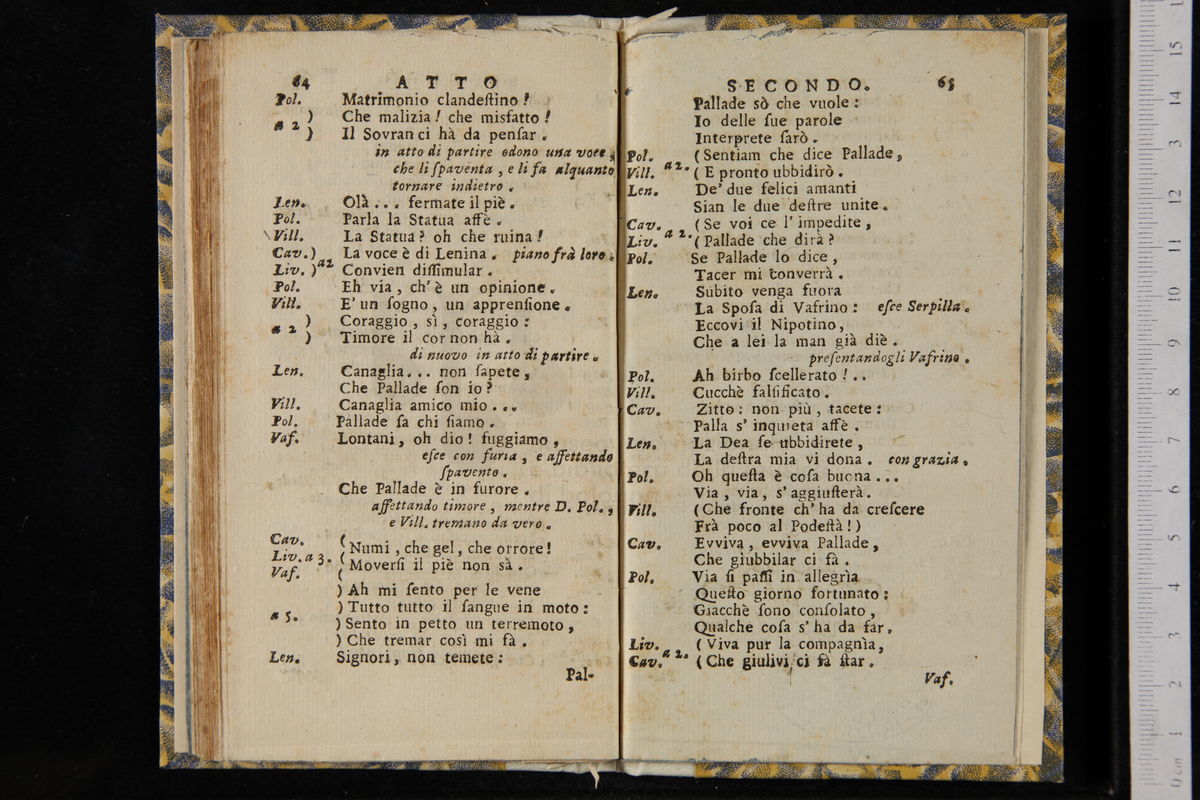 64 ATTO
Pol. Matrimonio clandeſtino!
) Che malizia! che misfatto!
a 2 ) Il Sovran ci hà da penſar.
in atto di partire odono una voce,
che li ſpaventa, e li fa alquanto
tornare indietro.
Len. Olà... fermate il piè.
Pol. Parla la Statua affè.
Vill. La Statua? oh che ruina!
Cav.) La voce è di Lenina. piano frà loro.
Liv.) a2 Convien diſſimular.
Pol. Eh via, ch'è un opinione.
Vill. E' un ſogno, un apprenſione.
) Coraggio, sì, coraggio:
a 2 ) Timore il cor non hà.
di nuovo in atto di partire.
Len. Canaglia... non ſapete,
Che Pallade ſon io?
Vill. Canaglia amico mio...
Pol. Pallade ſa chi ſiamo.
Vaf. Lontani, oh dio! fuggiamo,
eſce con furia, e affettando
ſpavento.
Che Pallade è in furore.
affettando timore, mentre D. Pol.,
e Vill. tremano da vero.
Cav. (
Liv. a 3. ( Numi, che gel, che orrore!
Vaf. ( Moverſi il piè non sà.
) Ah mi ſento per le vene
) Tutto tutto il ſangue in moto:
a 5. ) Sento in petto un terremoto,
) Che tremar così mi fà.
Len. Signori, non temete:
Pal-
SECONDO. 65
Pallade sò che vuole:
Io delle ſue parole
Interprete ſarò.
Pol. (Sentiam che dice Pallade,
Vill. a 2. (E pronto ubbidirò.
Len. De' due felici amanti
Sian le due deſtre unite.
Cav. (Se voi ce l'impedite,
Liv. a 2. (Pallade che dirà?
Pol. Se Pallade lo dice,
Tacer mi converrà.
Len. Subito venga fuora
La Spoſa di Vafrino: eſce Serpilla.
Eccovi il Nipotino,
Che a lei la man già diè.
preſentandogli Vafrino.
Pol. Ah birbo ſcellerato!..
Vill. Cucchè falſificato.
Cav. Zitto: non più, tacete:
Palla s'inquieta affè.
Len. La Dea ſe ubbidirete,
La deſtra mia vi dona. con grazia.
Pol. Oh queſta è coſa buona...
Via, via, s'aggiuſterà.
Vill. (Che fronte ch'ha da creſcere
Frà poco al Podeſtà!)
Cav. Evviva, evviva Pallade,
Che giubbilar ci fà.
Pol. Via ſi paſſi in allegrìa
Queſto giorno fortunato:
Giacchè ſono conſolato,
Qualche coſa s'ha da far.
Liv. (Viva pur la compagnìa,
Cav. a 2. (Che giulivi ci fà ſtar.
Vaf.
0 cm 1 2 3 4 5 6 7 8 9 10 11 12 13 14 15